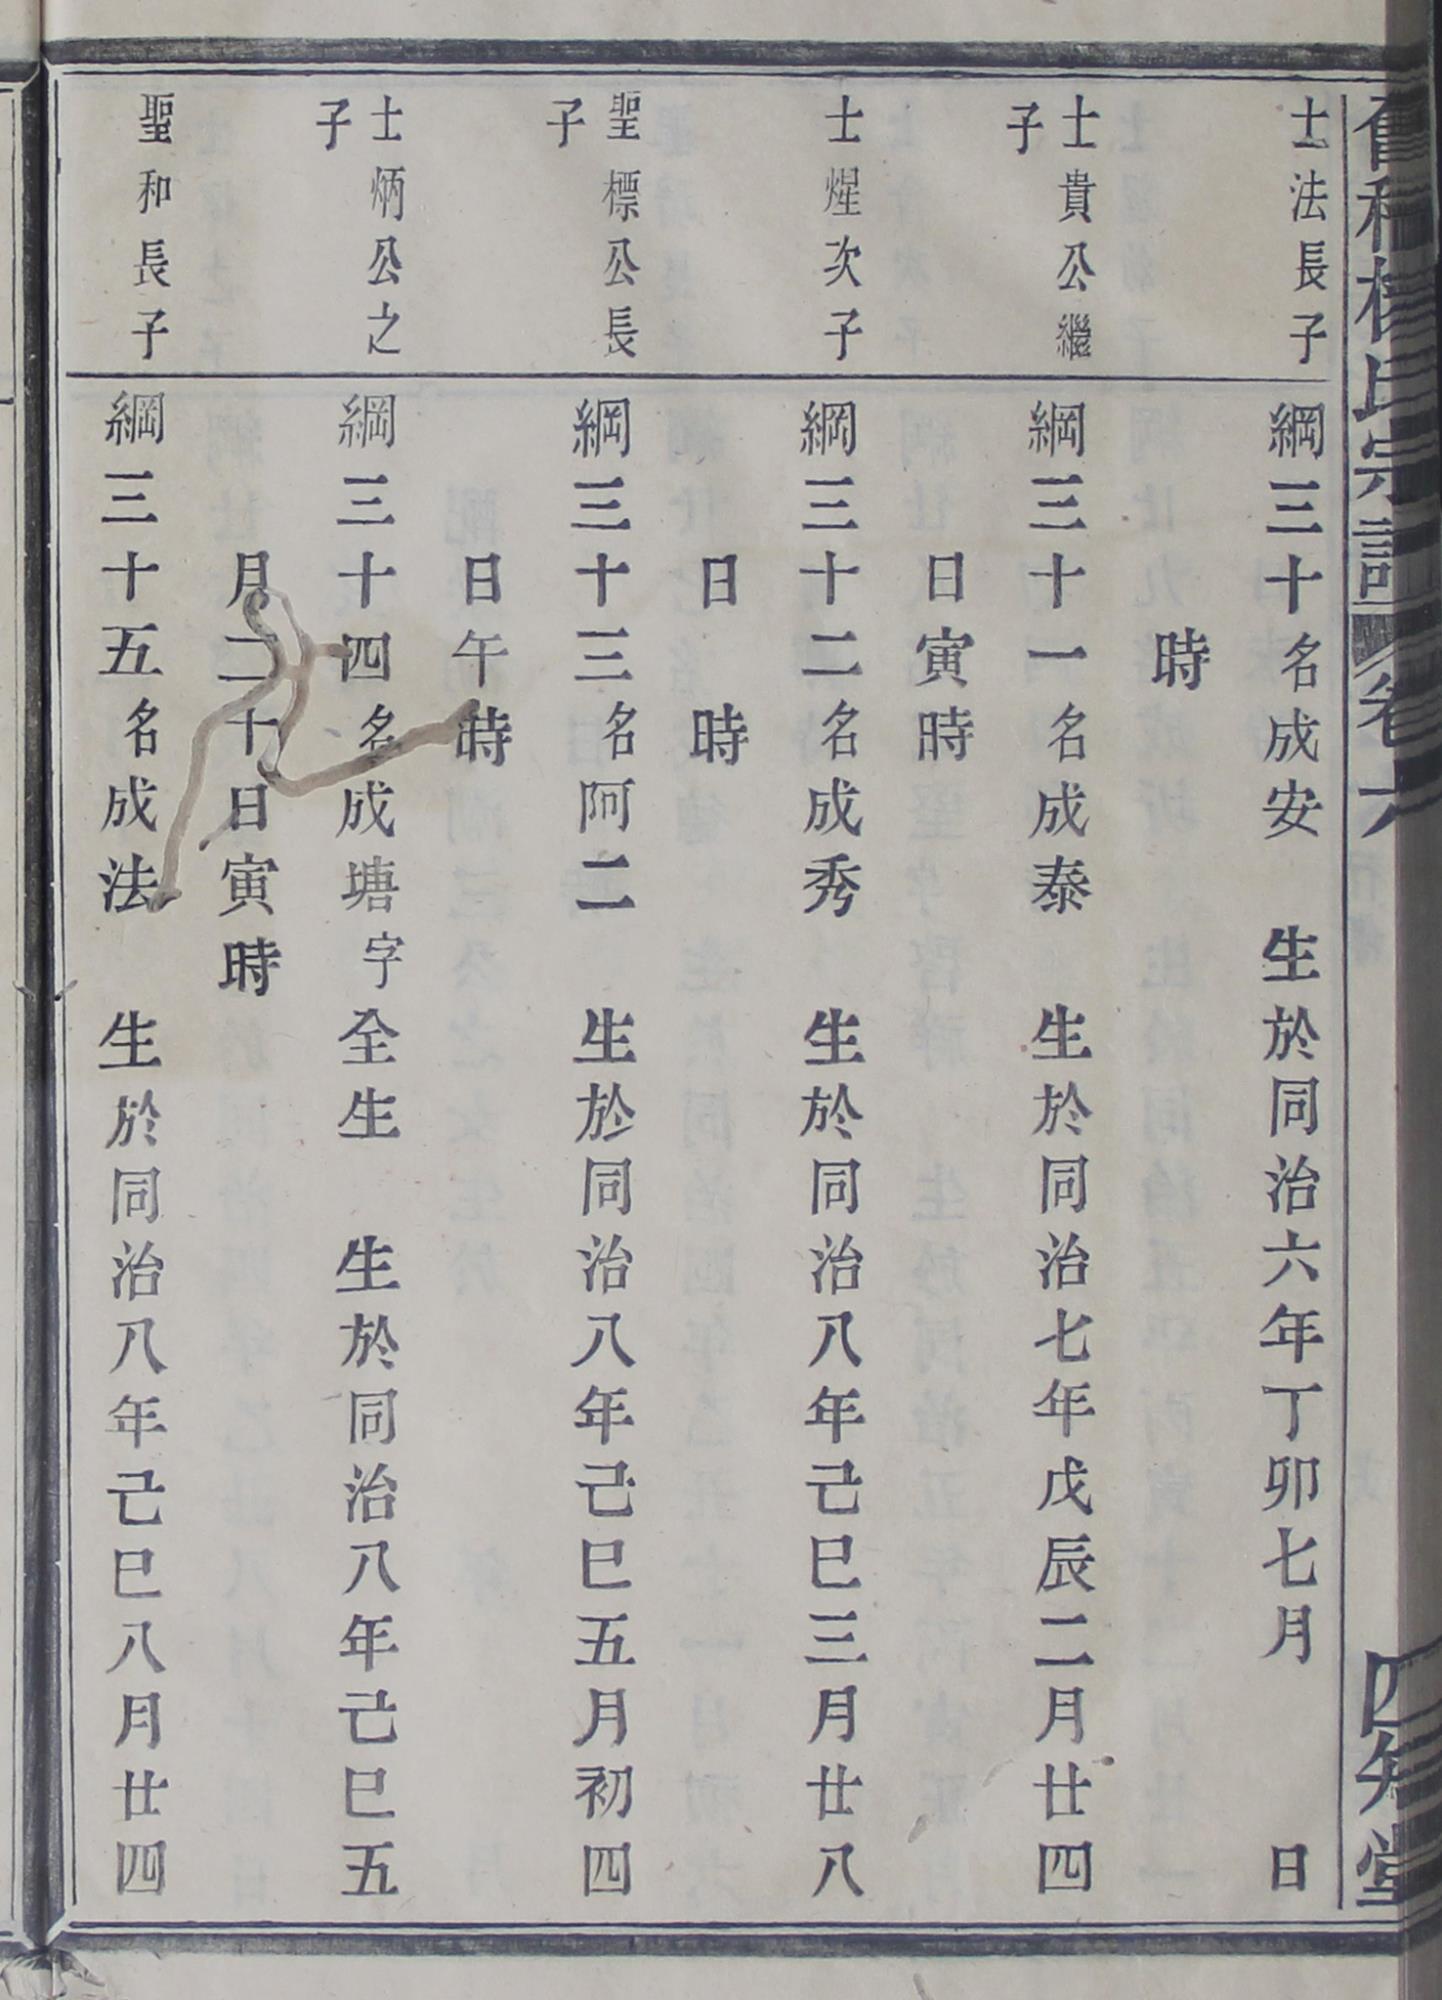 宗譜 卷六 四知堂
士法長子
綱三十名成安 生於同治六年丁卯七月 日
時
士貴公繼
子
綱三十一名成泰 生於同治七年戊辰二月廿四
日寅時
士煋次子
綱三十二名成秀 生於同治八年己巳三月廿八
日 時
聖標公長
子
綱三十三名阿二 生於同治八年己巳五月初四
日午時
士炳公之
子
綱三十四名成塘字全生 生於同治八年己巳五
月二十日寅時
聖和長子
綱三十五名成法 生於同治八年己巳八月廿四